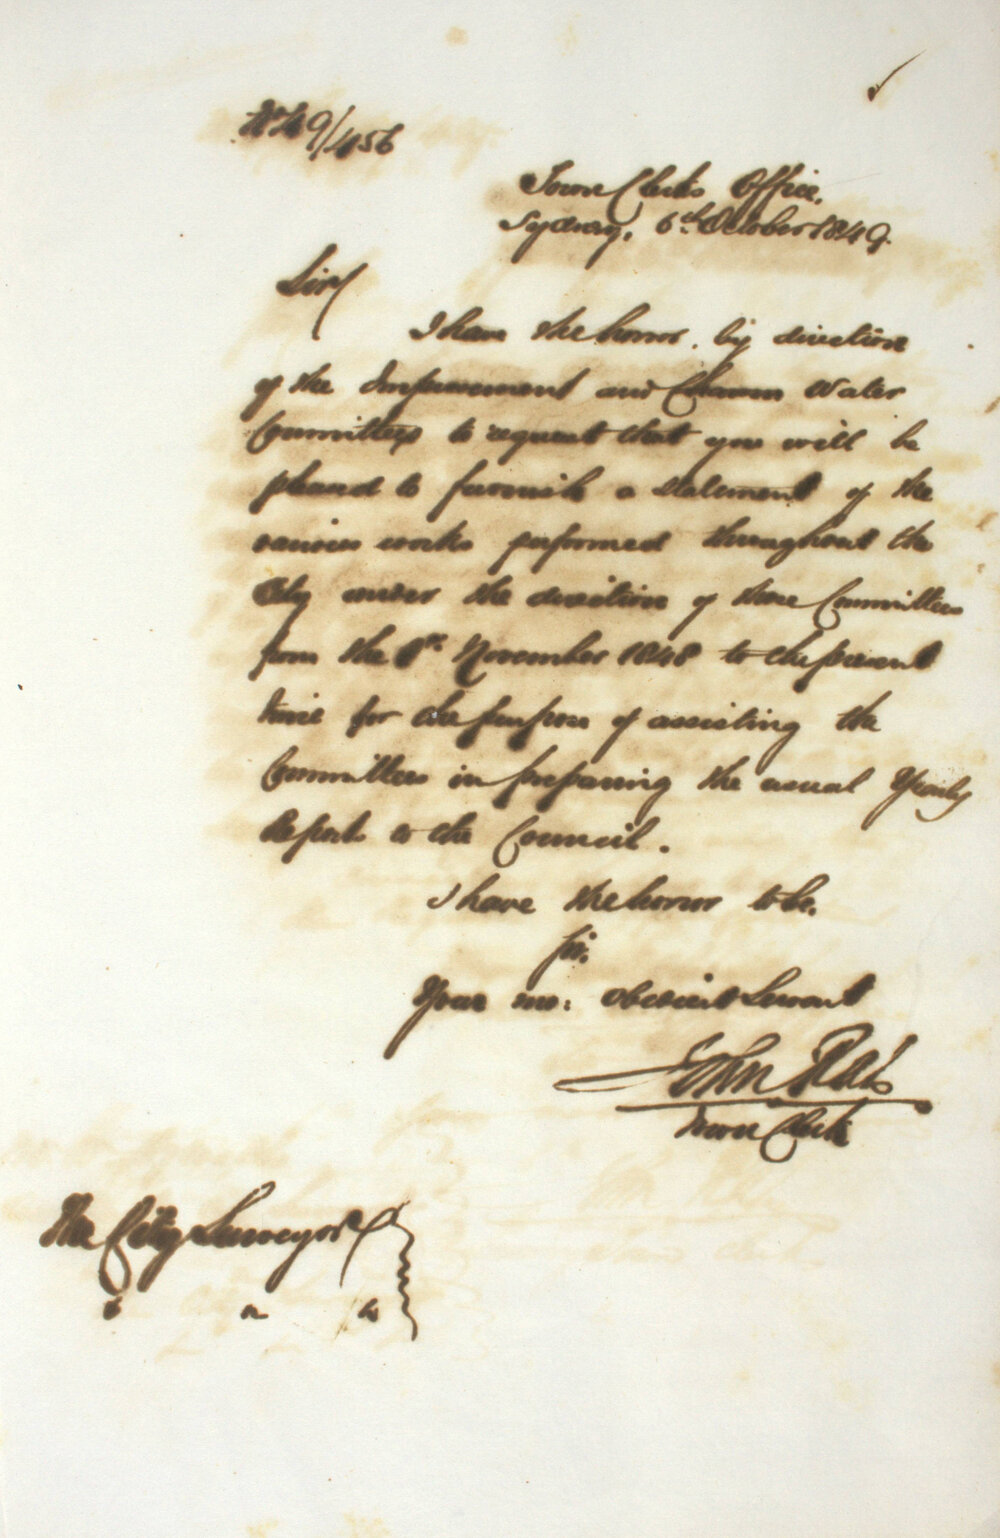 No 49/456
Town Clerk's Office,
Sydney, 6th October 1849.
Sir
I have the honor, by direction
of the Improvement and Common Water
Committees to request that you will be
pleased to furnish a statement of the
various works performed throughout the
City under the direction of those Committees
from the 1st November 1848 to the present
time for the purpose of assisting the
Committees in preparing the usual Yearly
Reports to the Council.
I have the honor to be,
Sir,
Your mo: obedient Servant
John Rae
Town Clerk
The City Surveyor